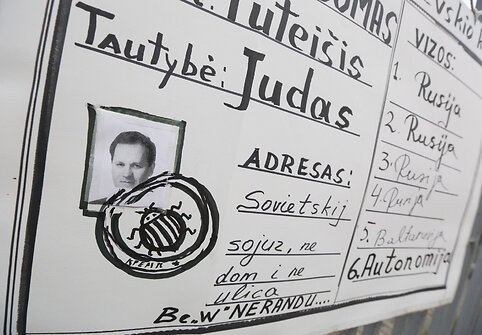 Tuteišis
Tautybė: Judas
ADRESAS:
Sovietskij
sojuz, ne
dom i ne
ulica
Be „W" NERANDU....
VIZOS:
1. Rusija
2. Rusija
3. Rusija
4. Rusija
5. Baltarusija
6. Autonomija